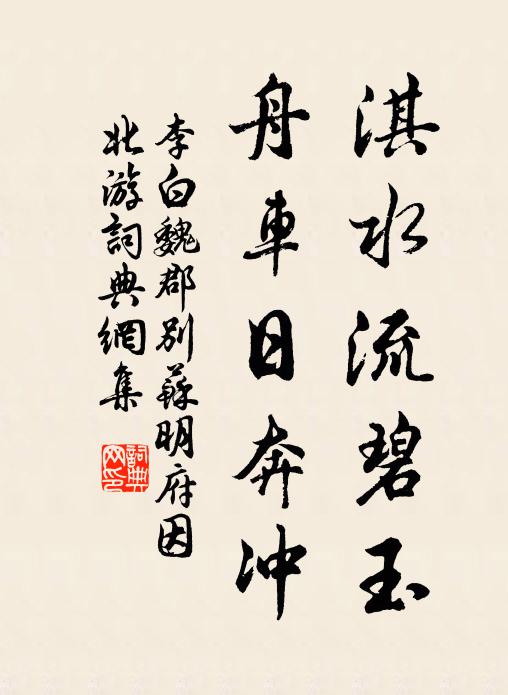 淇水流碧玉
舟車日奔沖
李白魏郡別蘇明府因
北游詞典網集
詞典
网印